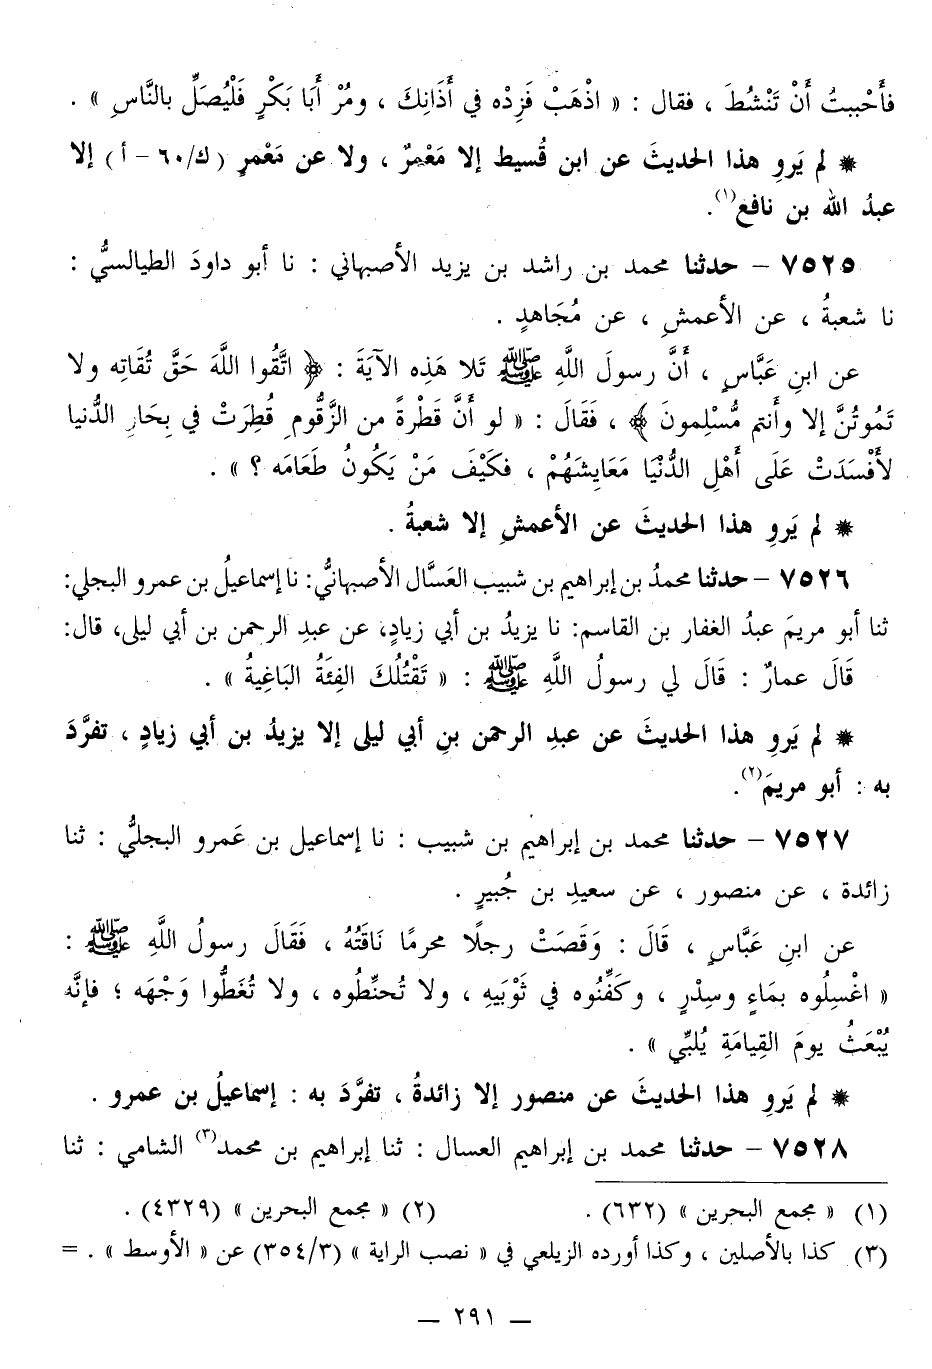 فأَحْببتُ أَنْ تَنْشُطَ ، فقال : « اذْهَبْ فَزِدْه في أَذَانِكَ ، ومُرْ أَبَا بَكْرٍ فَلْيُصَلِّ بالنَّاسِ » .
* لم يَروِ هذا الحديثَ عن ابن قُسيط إلا مَعْمرٌ ، ولا عن مَعْمرٍ ( ك/٦٠ - أ ) إلا
عبدُ الله بن نافع(١).
٧٥٢٥ – حدثنا محمد بن راشد بن يزيد الأصبهاني : نا أبو داودَ الطيالسيُّ :
نا شعبةُ ، عن الأعمشِ ، عن مُجَاهدٍ .
عن ابنِ عَبَّاسٍ ، أَنَّ رسولَ اللَّهِ ﷺ تَلا هَذِه الآيَةَ : ﴿ اتَّقُوا اللَّهَ حَقَّ تُقَاتِه ولا
تَمُوتُنَّ إلا وأَنتم مُّسْلِمونَ ﴾ ، فَقَالَ : « لو أَنَّ قَطْرةً من الزَّقُّومِ قُطِرَتْ في بِحَارِ الدُّنيا
لأَفْسَدَتْ عَلَى أَهْلِ الدُّنْيَا مَعَايِشَهُمْ ، فكَيْفَ مَنْ يَكُونُ طَعَامَه ؟ » .
* لم يَروِ هذا الحديثَ عن الأعمشِ إلا شعبةُ .
٧٥٢٦ – حدثنا محمدُ بن إبراهيم بن شبيب العَسَّال الأصبهانيُّ: نا إسماعيلُ بن عمرو البجلي:
ثنا أبو مريمَ عبدُ الغفار بن القاسم: نا يزيدُ بن أبي زيادٍ، عن عبدِ الرحمن بن أبي ليلى، قال:
قَالَ عمارٌ : قَالَ لي رسولُ اللَّهِ ﷺ : « تَقْتُلُكَ الفِئَةُ البَاغِيةُ » .
* لم يَروِ هذا الحديثَ عن عبدِ الرحمن بنِ أبي ليلى إلا يزيدُ بن أبي زيادٍ ، تفرَّدَ
به : أبو مريمَ(٢).
٧٥٢٧ – حدثنا محمد بن إبراهيم بن شبيب : نا إسماعيل بن عَمرو البجليُّ : ثنا
زائدة ، عن منصور ، عن سعيدِ بن جُبيرٍ .
عن ابنِ عَبَّاسٍ ، قَالَ : وَقَصَتْ رجلًا محرمًا نَاقَتُهُ ، فَقَالَ رسولُ اللَّهِ ﷺ :
« اغْسِلُوه بمَاءٍ وسِدْرٍ ، وكَفِّنُوه في ثَوْبَيهِ ، ولا تُحنِّطُوه ، ولا تُغَطُّوا وَجْهَه ؛ فإنَّه
يُبْعَثُ يومَ القِيامَةِ يُلبِّي » .
* لم يَروِ هذا الحديثَ عن منصور إلا زائدةُ ، تفرَّدَ به : إسماعيلُ بن عمرو .
٧٥٢٨ – حدثنا محمد بن إبراهيم العسال : ثنا إبراهيم بن محمد(٣) الشامي : ثنا
(١) « مجمع البحرين » (٦٣٢) . (٢) « مجمع البحرين » (٤٣٢٩) .
(٣) كذا بالأصلين ، وكذا أورده الزيلعي في « نصب الراية » (٣٥٤/٣) عن « الأوسط » . =
– ٢٩١ –